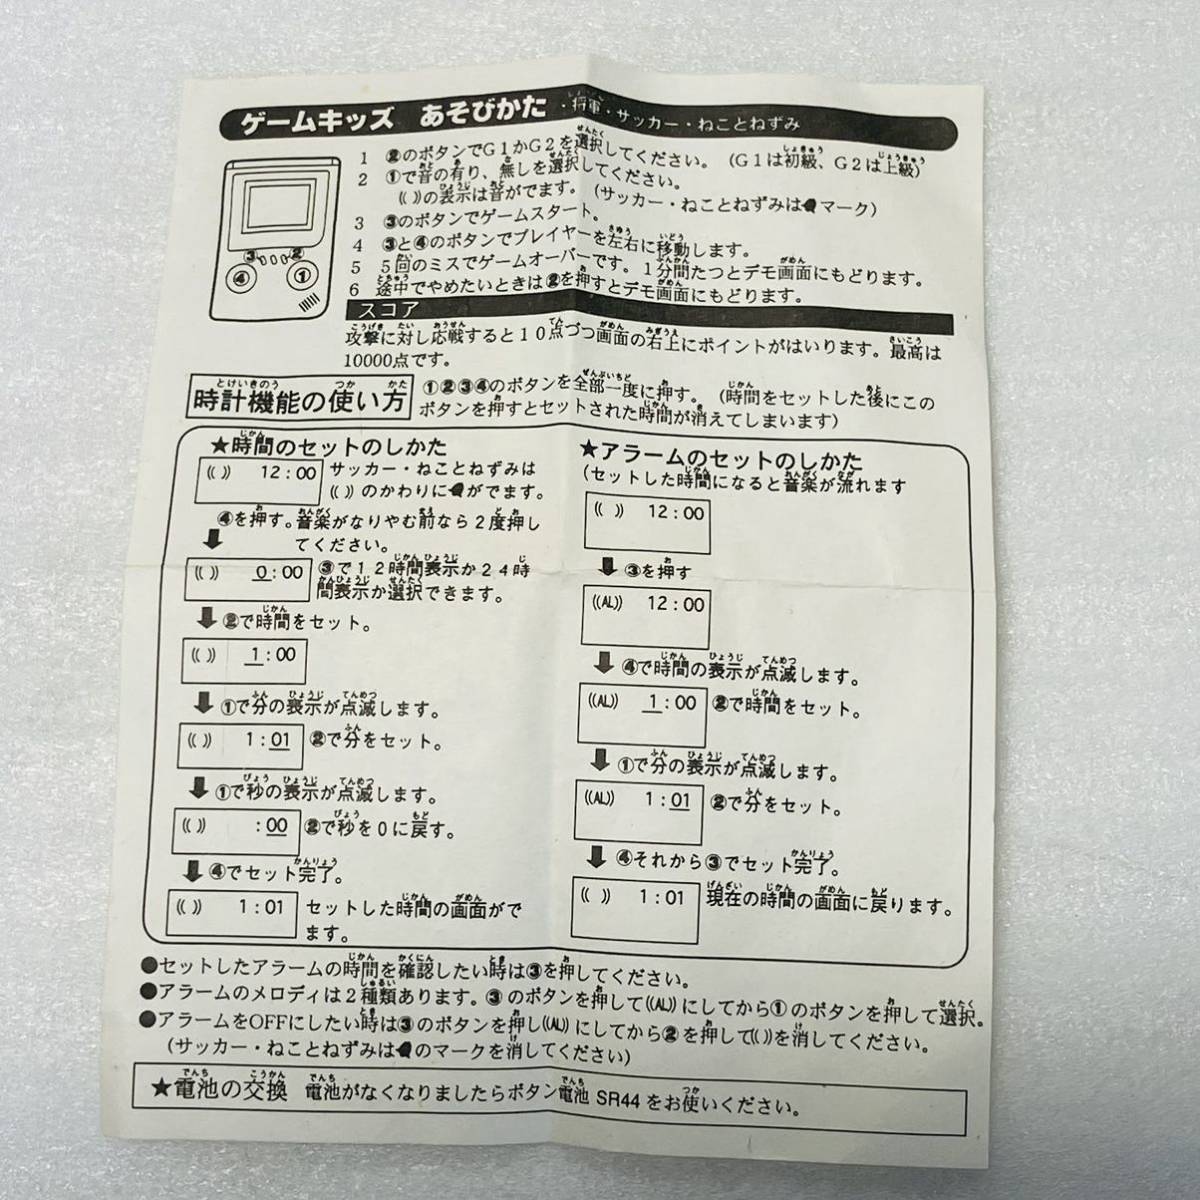 ゲームキッズ あそびかた ・将軍・サッカー・ねことねずみ
1 ②のボタンでG1かG2を選択してください。(G1は初級、G2は上級)
2 ①で音の有り、無しを選択してください。
(( ))の表示は音がでます。(サッカー・ねことねずみはマーク)
3 ③のボタンでゲームスタート。
4 ③と④のボタンでプレイヤーを左右に移動します。
5 5回のミスでゲームオーバーです。1分間たつとデモ画面にもどります。
6 途中でやめたいときは②を押すとデモ画面にもどります。
③ ②
④ ①
スコア
攻撃に対し応戦すると10点づつ画面の右上にポイントがはいります。最高は
10000点です。
時計機能の使い方
①②③④のボタンを全部一度に押す。(時間をセットした後にこの
ボタンを押すとセットされた時間が消えてしまいます)
★時間のセットのしかた
(( )) 12:00
サッカー・ねことねずみは
(( ))のかわりにがでます。
④を押す。音楽がなりやむ前なら2度押し
てください。
(( )) 0:00
③で12時間表示か24時
間表示か選択できます。
②で時間をセット。
(( )) 1:00
①で分の表示が点滅します。
(( )) 1:01 ②で分をセット。
①で秒の表示が点滅します。
(( )) :00 ②で秒を0に戻す。
④でセット完了。
(( )) 1:01 セットした時間の画面がで
ます。
★アラームのセットのしかた
(セットした時間になると音楽が流れます
(( )) 12:00
③を押す
((AL)) 12:00
④で時間の表示が点滅します。
((AL)) 1:00 ②で時間をセット。
①で分の表示が点滅します。
((AL)) 1:01 ②で分をセット。
④それから③でセット完了。
(( )) 1:01 現在の時間の画面に戻ります。
●セットしたアラームの時間を確認したい時は③を押してください。
●アラームのメロディは2種類あります。③のボタンを押して((AL))にしてから①のボタンを押して選択。
●アラームをOFFにしたい時は③のボタンを押し((AL))にしてから②を押して(( ))を消してください。
(サッカー・ねことねずみはのマークを消してください)
★電池の交換 電池がなくなりましたらボタン電池 SR44 をお使いください。